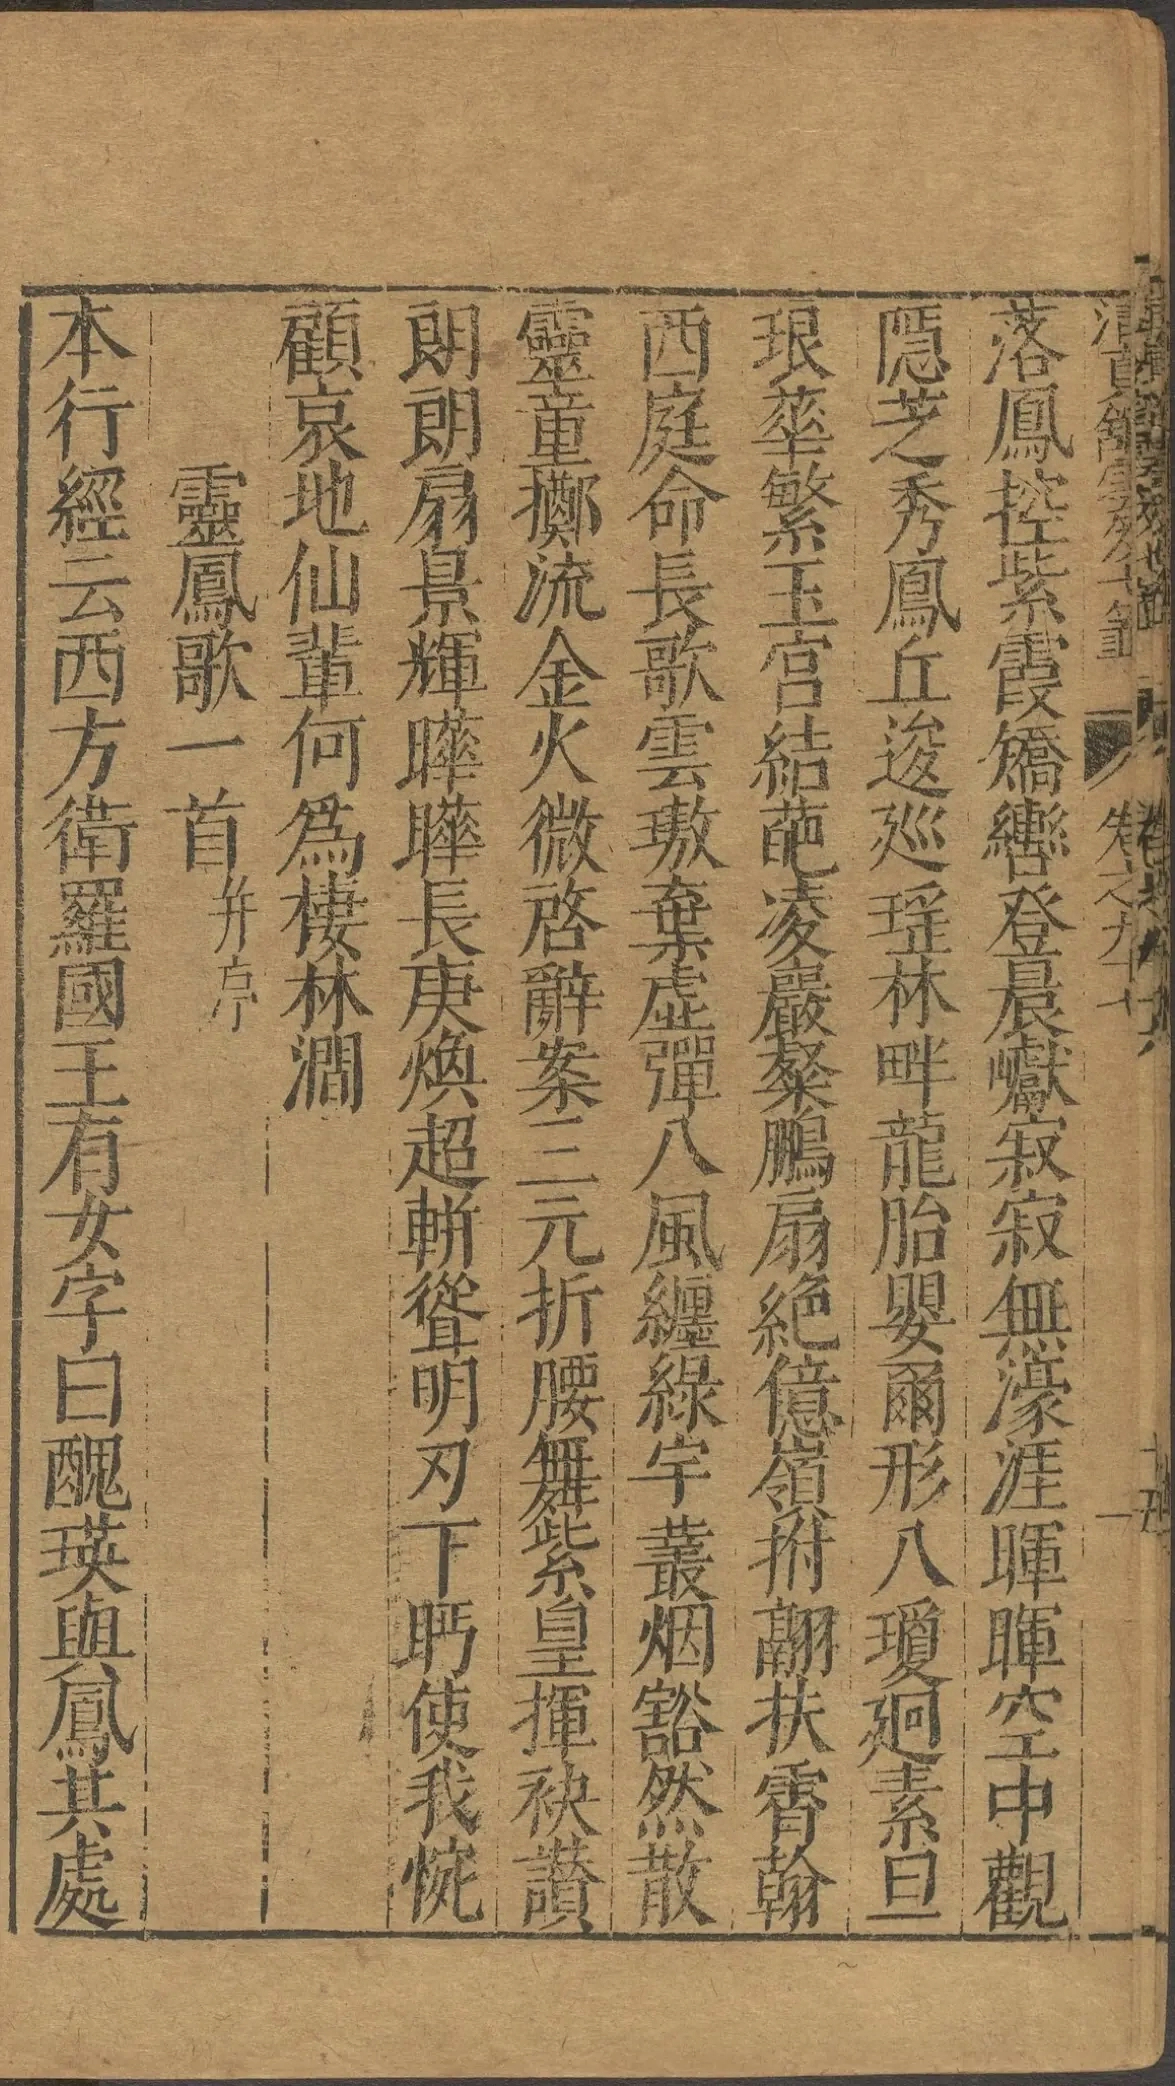 落鳳控紫霞矯轡登晨巘寂寂無濠涯暉暉空中觀
隠芝秀鳳丘逡巡瑶林畔龍胎嬰爾形八瓊廻素旦
琅華繁玉宮結葩凌巖粲鵬扇絶億嶺拊翮扶霄翰
西庭命長歌雲璈棄虛彈八風纏綠宇叢烟豁然散
靈童擲流金火微啓辭案三元折腰舞紫皇揮袂讃
朗朗扇景輝曄曄長庚煥超軿聳明刃下眄使我惋
顧哀地仙輩何爲棲林澗
靈鳳歌一首并序
本行經云西方衛羅國王有女字曰醜瑛與鳳其處